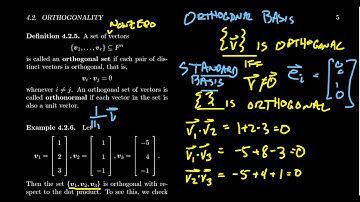 4.2. ORTHOGONALITY 5
NONZERO
Definition 4.2.5. A set of vectors
{v₁, . . . , vᵣ} ⊆ Fⁿ
is called an orthogonal set if each pair of dis-
tinct vectors is orthogonal, that is,
vᵢ · vⱼ = 0
whenever i ≠ j. An orthogonal set of vectors is
called orthonormal if each vector in the set is
also a unit vector.
Example 4.2.6. Let
v₁ = [1 2 3], v₂ = [1 1 -1], v₃ = [-5 4 -1].
Then the set {v₁, v₂, v₃} is orthogonal with re-
spect to the dot product. To see this, we check
ORTHOGONAL BASIS
{v} IS ORTHOGONAL
IFF
v ≠ 0
STANDARD
BASIS
{ } IS ORTHOGONAL
v₁·v₂ = 1+2-3=0
v₁·v₃ = -5+8-3=0
v₂·v₃ = -5+4+1=0